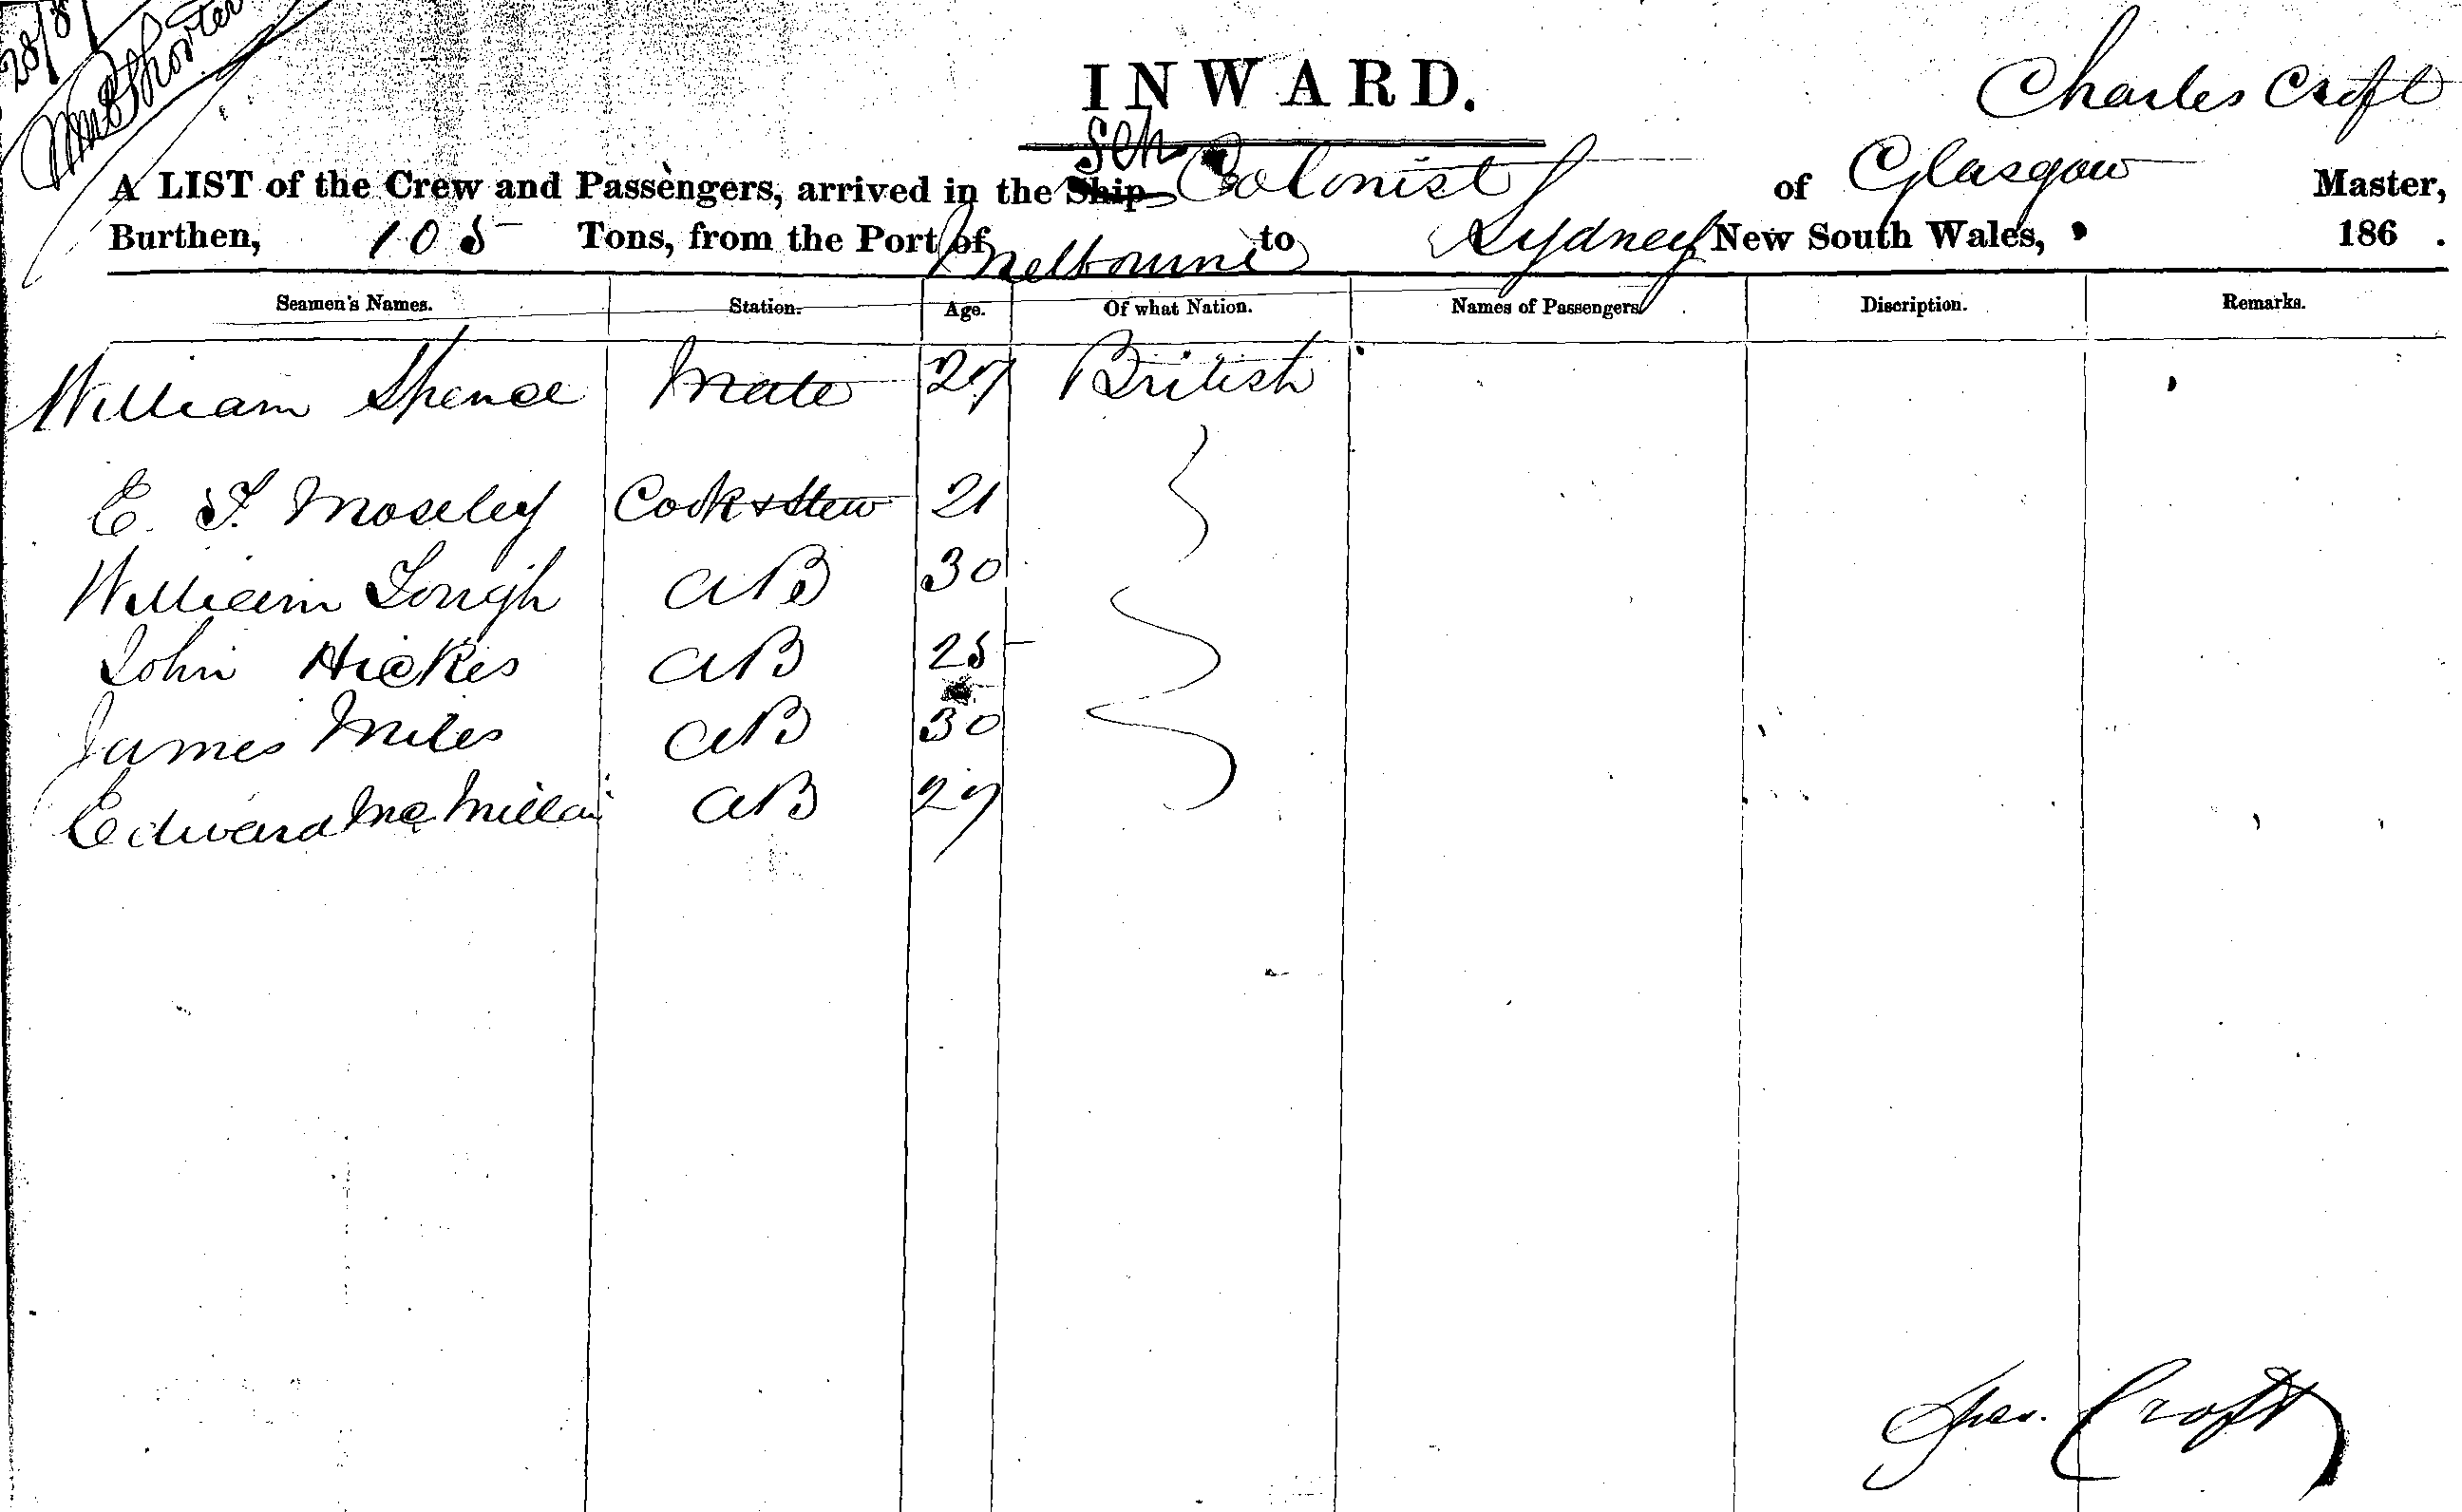 28/8/
INWARD.
Charles Croft
A LIST of the Crew and Passengers, arrived in the Ship Sch Colonist of Glasgow Master,
Burthen, 105 Tons, from the Port of Melbourne to Sydney New South Wales, 186 .
Seamen's Names. Station. Age. Of what Nation. Names of Passengers Discription. Remarks.
William Spence Mate 27 British
E. F. Moseley Cook & Stew 21
William Lough AB 30
John Hickes AB 25
James Miles AB 30
Edward McMillan AB 27
Chas. Croft